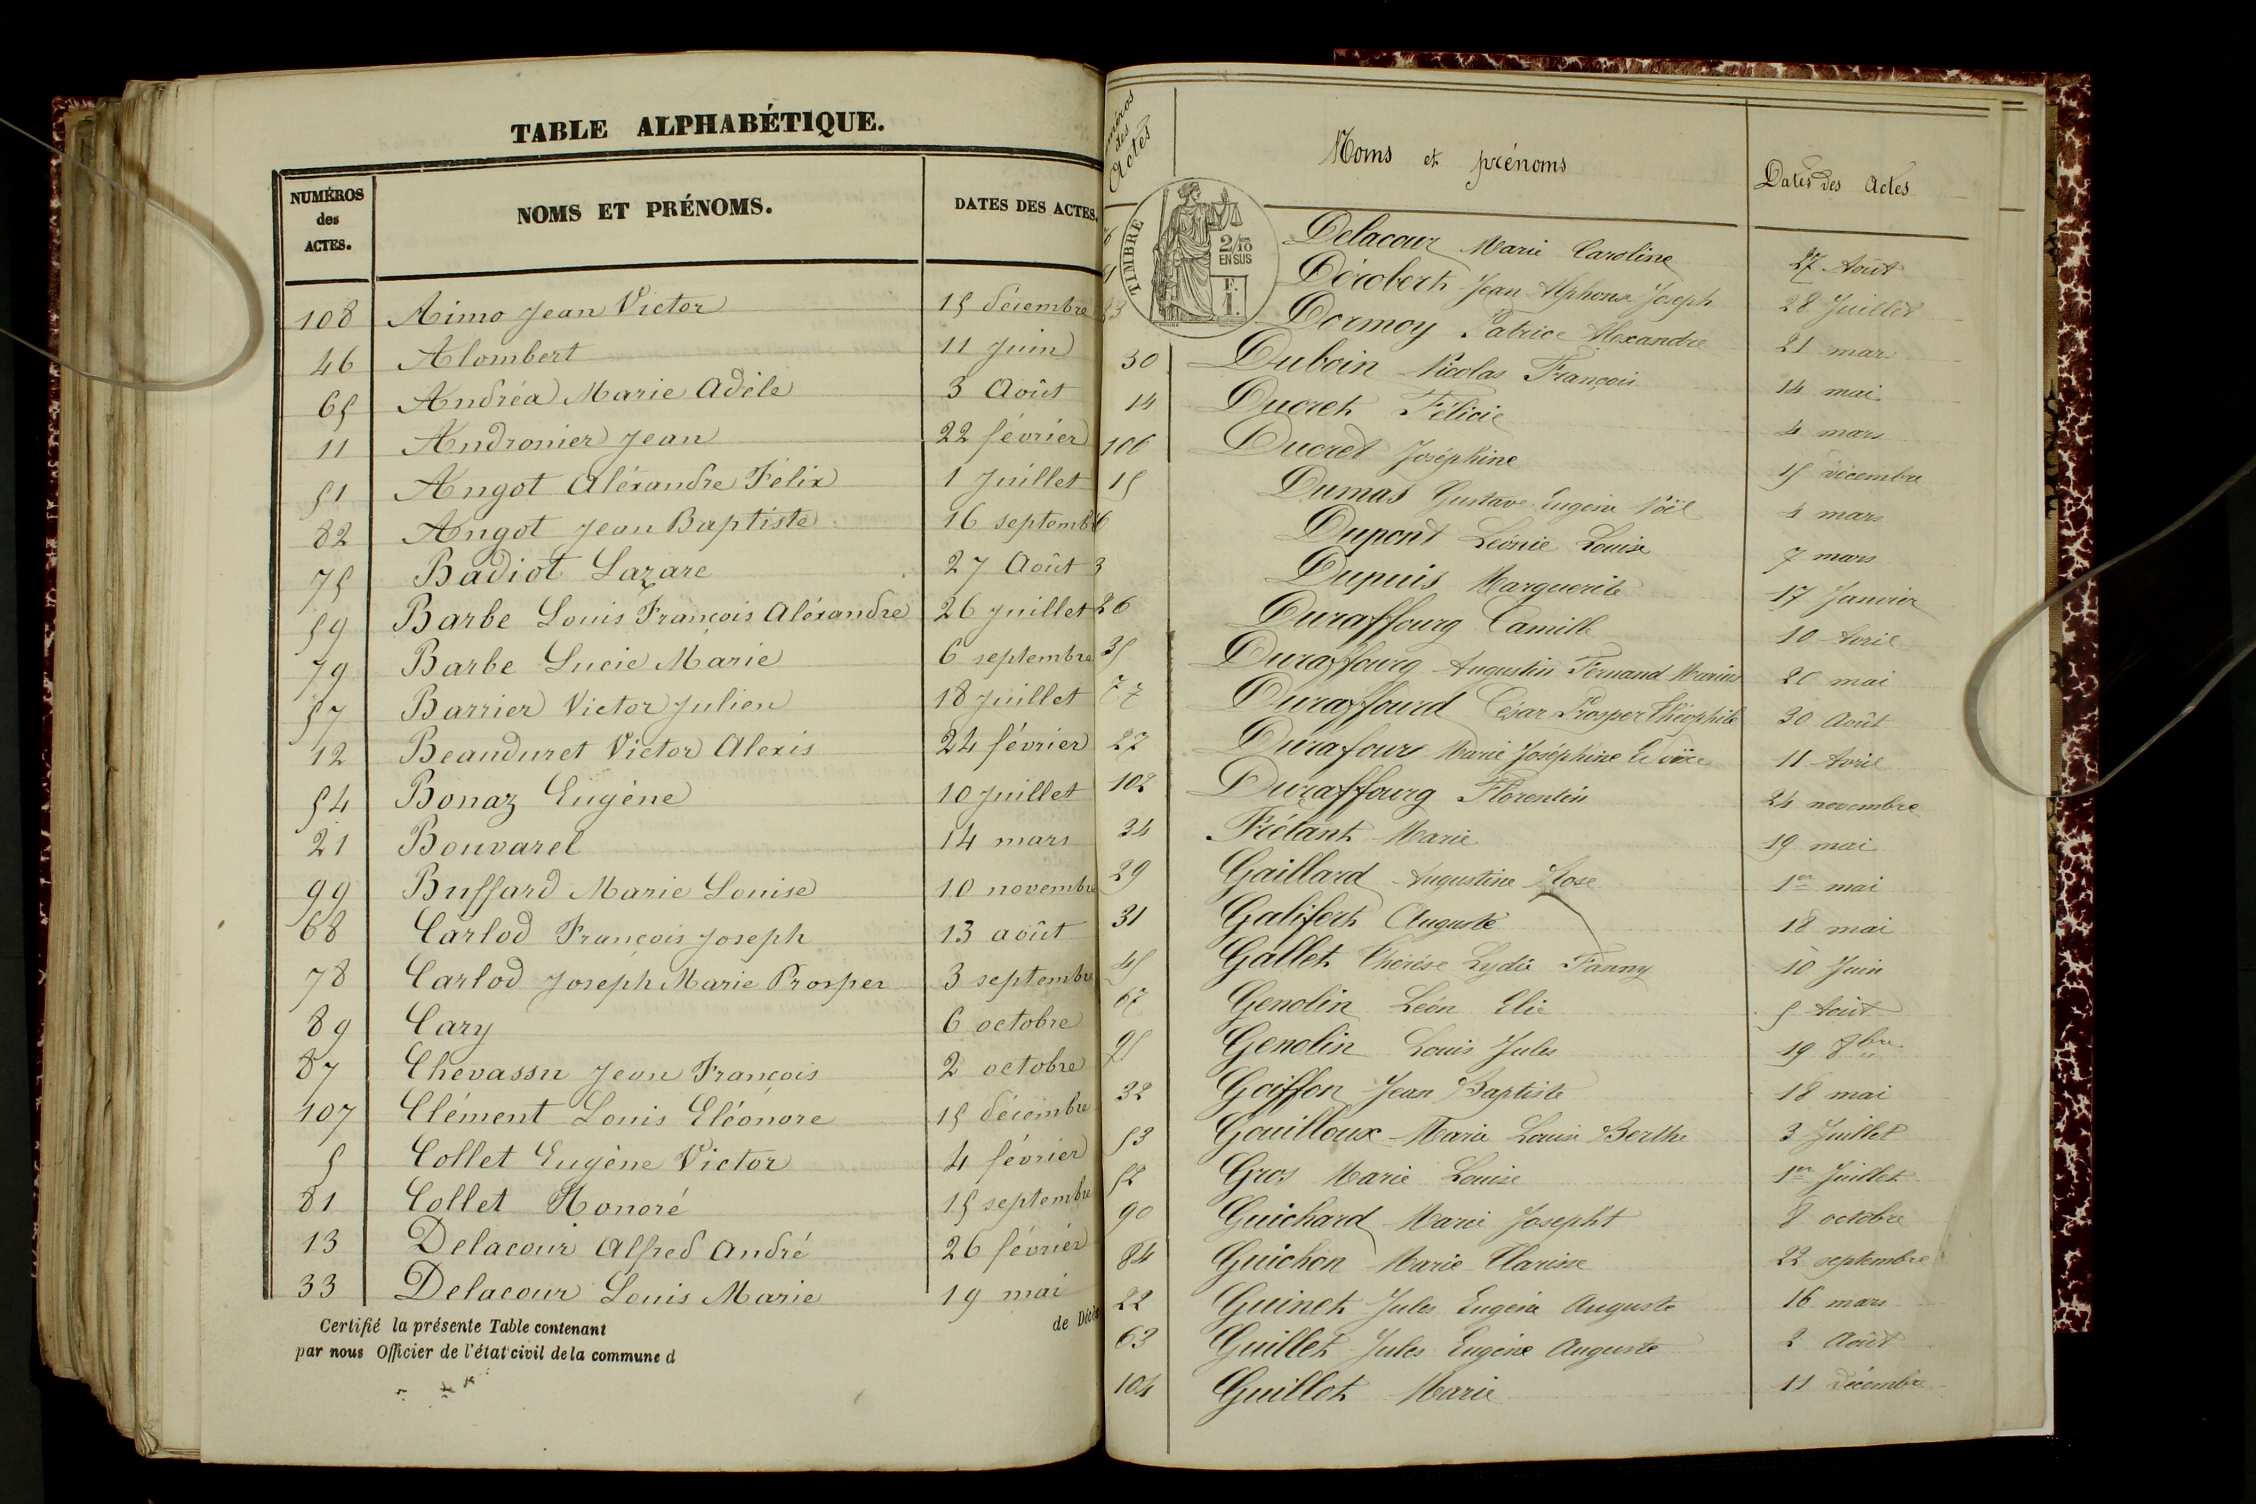 TABLE ALPHABÉTIQUE.
NUMÉROS des ACTES. NOMS ET PRÉNOMS. DATES DES ACTES.
108 Aimo Jean Victor 15 décembre
46 Alombert 11 Juin
65 Andréa Marie Adèle 3 Août
11 Andronier Jean 22 février
51 Angot Aléxandre Félix 1 Juillet
82 Angot Jean Baptiste 16 septembre
75 Badiot Lazare 27 Août
59 Barbe Louis François Aléxandre 26 Juillet
79 Barbe Lucie Marie 6 septembre
57 Barrier Victor Julien 18 Juillet
12 Beauduret Victor Alexis 24 février
54 Bonaz Eugène 10 Juillet
21 Bouvarel 14 mars
99 Buffard Marie Louise 10 novembre
68 Carlod François Joseph 13 août
78 Carlod Joseph Marie Prosper 3 septembre
89 Cary 6 octobre
87 Chevassu Jean François 2 octobre
107 Clément Louis Eléonore 15 décembre
5 Collet Eugène Victor 4 février
81 Collet Honoré 15 septembre
13 Delacour Alfred André 26 février
33 Delacour Louis Marie 19 mai
Certifié la présente Table contenant de Décès
par nous Officier de l'état civil de la commune d
des Actes Noms et prénoms Dates des Actes
TIMBRE 2/10 EN SUS F. 1.
Delacour Marie Caroline 27 Août
Dérobert Jean Alphonse Joseph 28 Juillet
Dormoy Patrice Alexandre 21 mars
30 Duboin Nicolas François 14 mai
14 Ducret Félicie 4 mars
106 Ducret Joséphine 15 décembre
15 Dumas Gustave Eugène Noël 4 mars
Dupont Léonie Louise 7 mars
3 Dupuis Marguerite 17 Janvier
26 Duraffourg Camille 10 Avril
35 Duraffourg Augustin Fernand Marius 20 mai
77 Duraffourd César Prosper Théophile 30 Août
27 Durafour Marie Joséphine 11 Avril
102 Duraffourg Florentin 24 novembre
34 Frétant Marie 19 mai
29 Gaillard Augustine Rose 1er mai
31 Galifert Auguste 18 mai
45 Gallet Thérèse Lydie Fanny 10 Juin
67 Genolin Léon Elie 5 Août
95 Genolin Louis Jules 19 8bre
32 Goiffon Jean Baptiste 18 mai
53 Gouilloux Marie Louise Berthe 3 Juillet
52 Gros Marie Louise 1er Juillet
90 Guichard Marie Josepht 8 octobre
84 Guichon Marie Clarisse 22 septembre
22 Guinet Jules Eugène Auguste 16 mars
63 Guillet Jules Eugène Auguste 2 Août
104 Guillot Marie 11 décembre